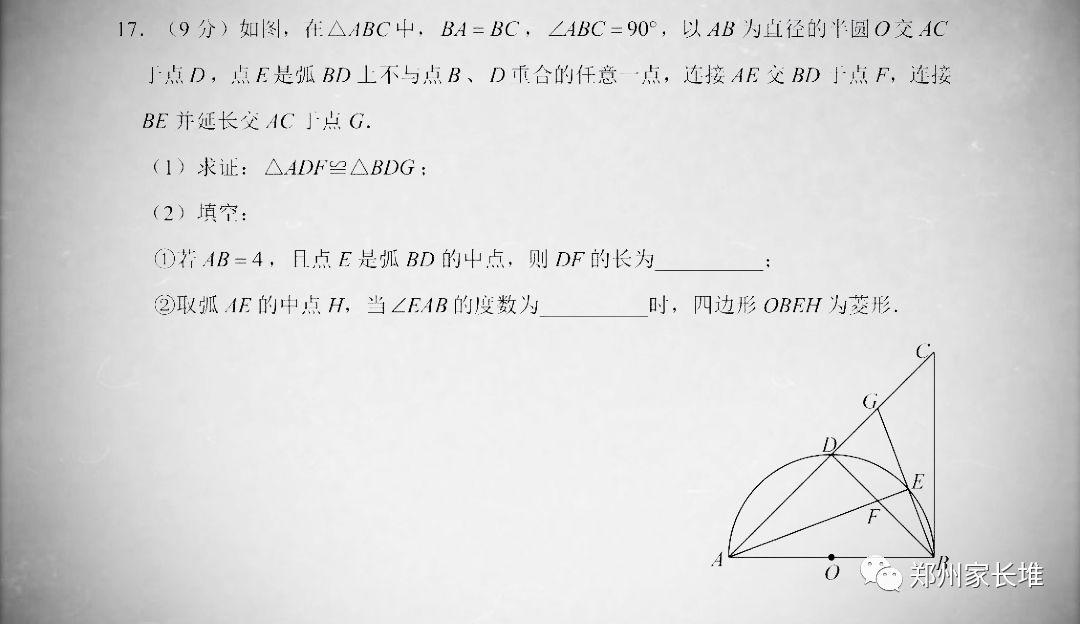 17. （9 分）如图，在△ABC中，BA=BC，∠ABC=90°，以 AB 为直径的半圆 O 交 AC
于点 D，点 E 是弧 BD 上不与点 B、D 重合的任意一点，连接 AE 交 BD 于点 F，连接
BE 并延长交 AC 于点 G.
（1）求证：△ADF≌△BDG；
（2）填空：
①若 AB=4，且点 E 是弧 BD 的中点，则 DF 的长为__________；
②取弧 AE 的中点 H，当∠EAB 的度数为__________时，四边形 OBEH 为菱形.
C
G
D
E
F
A
O
B
郑州家长堆